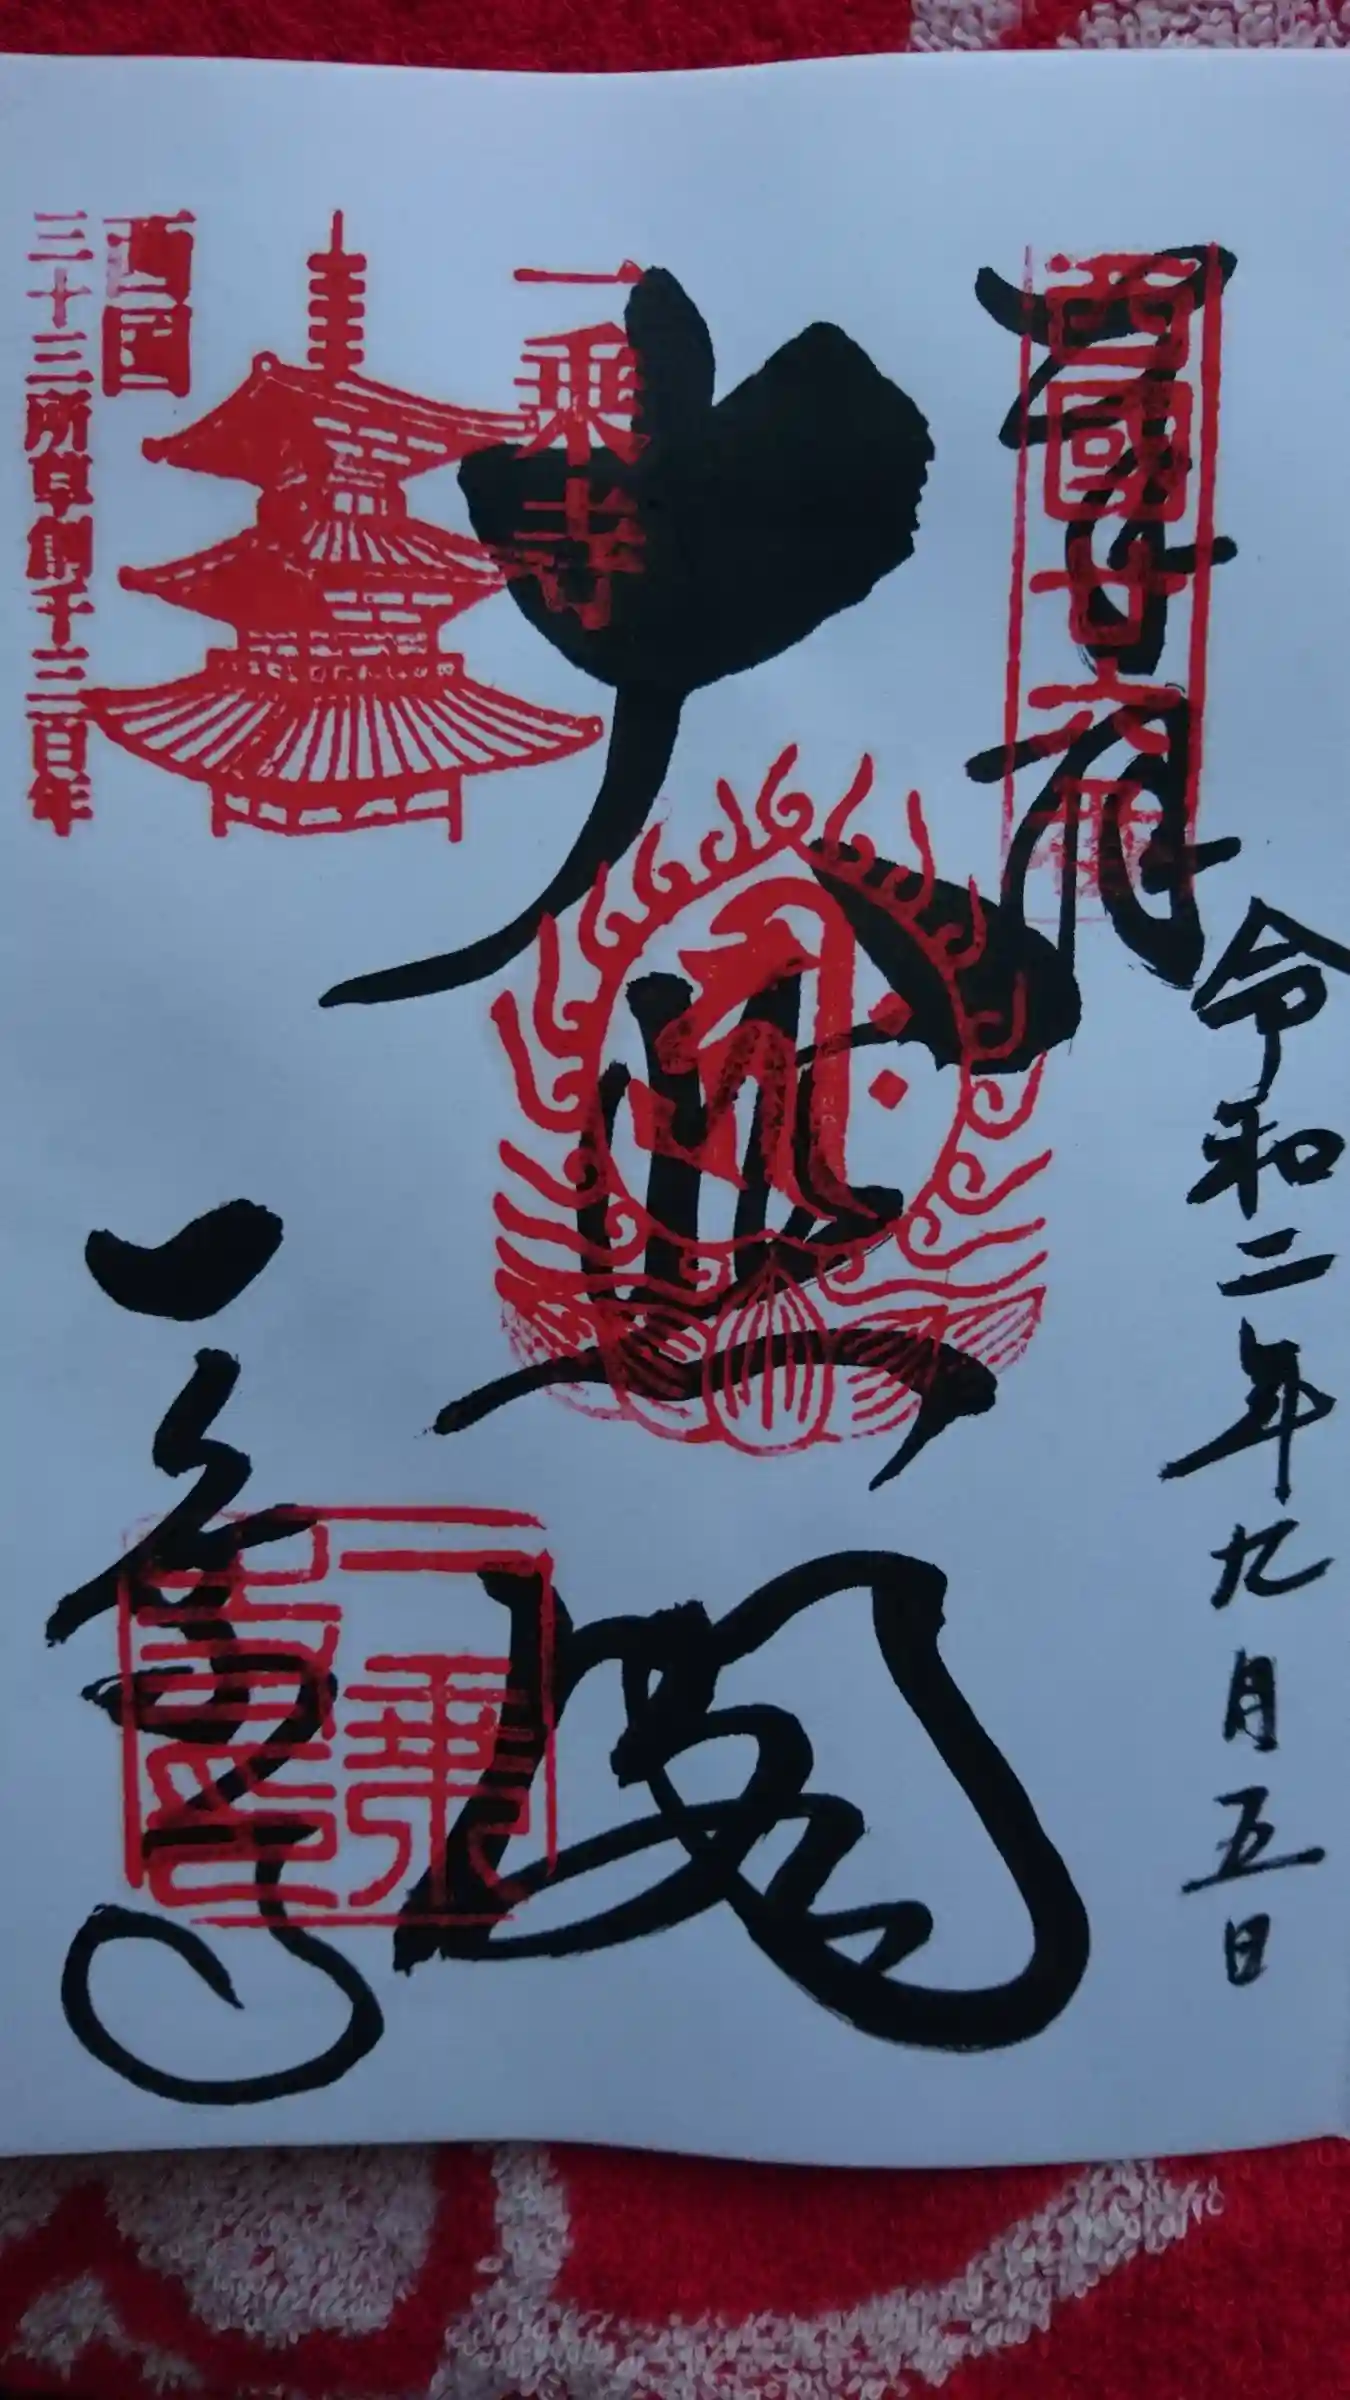 奉拝
西國廿六番
令和二年九月五日
大悲閣
一乗寺
西国
三十三所草創千三百年
一乗寺
一乗寺印